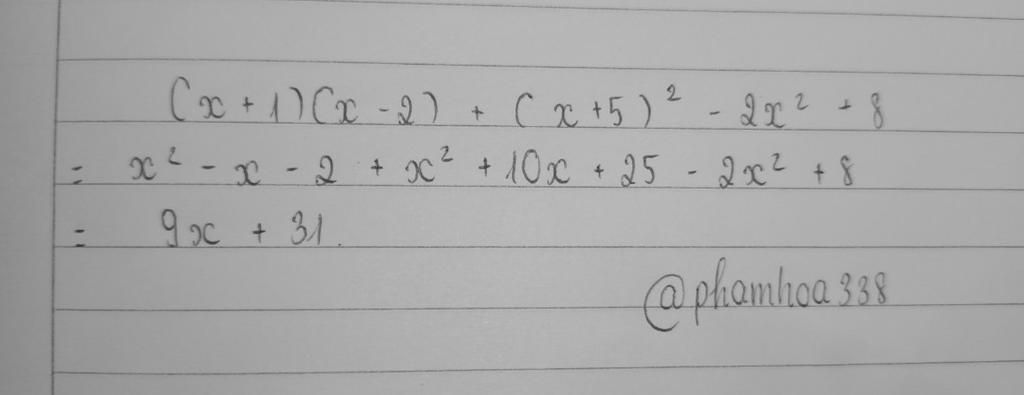 (x + 1)(x - 2) + (x + 5)² - 2x² + 8
= x² - x - 2 + x² + 10x + 25 - 2x² + 8
= 9x + 31.
@phamhoa338